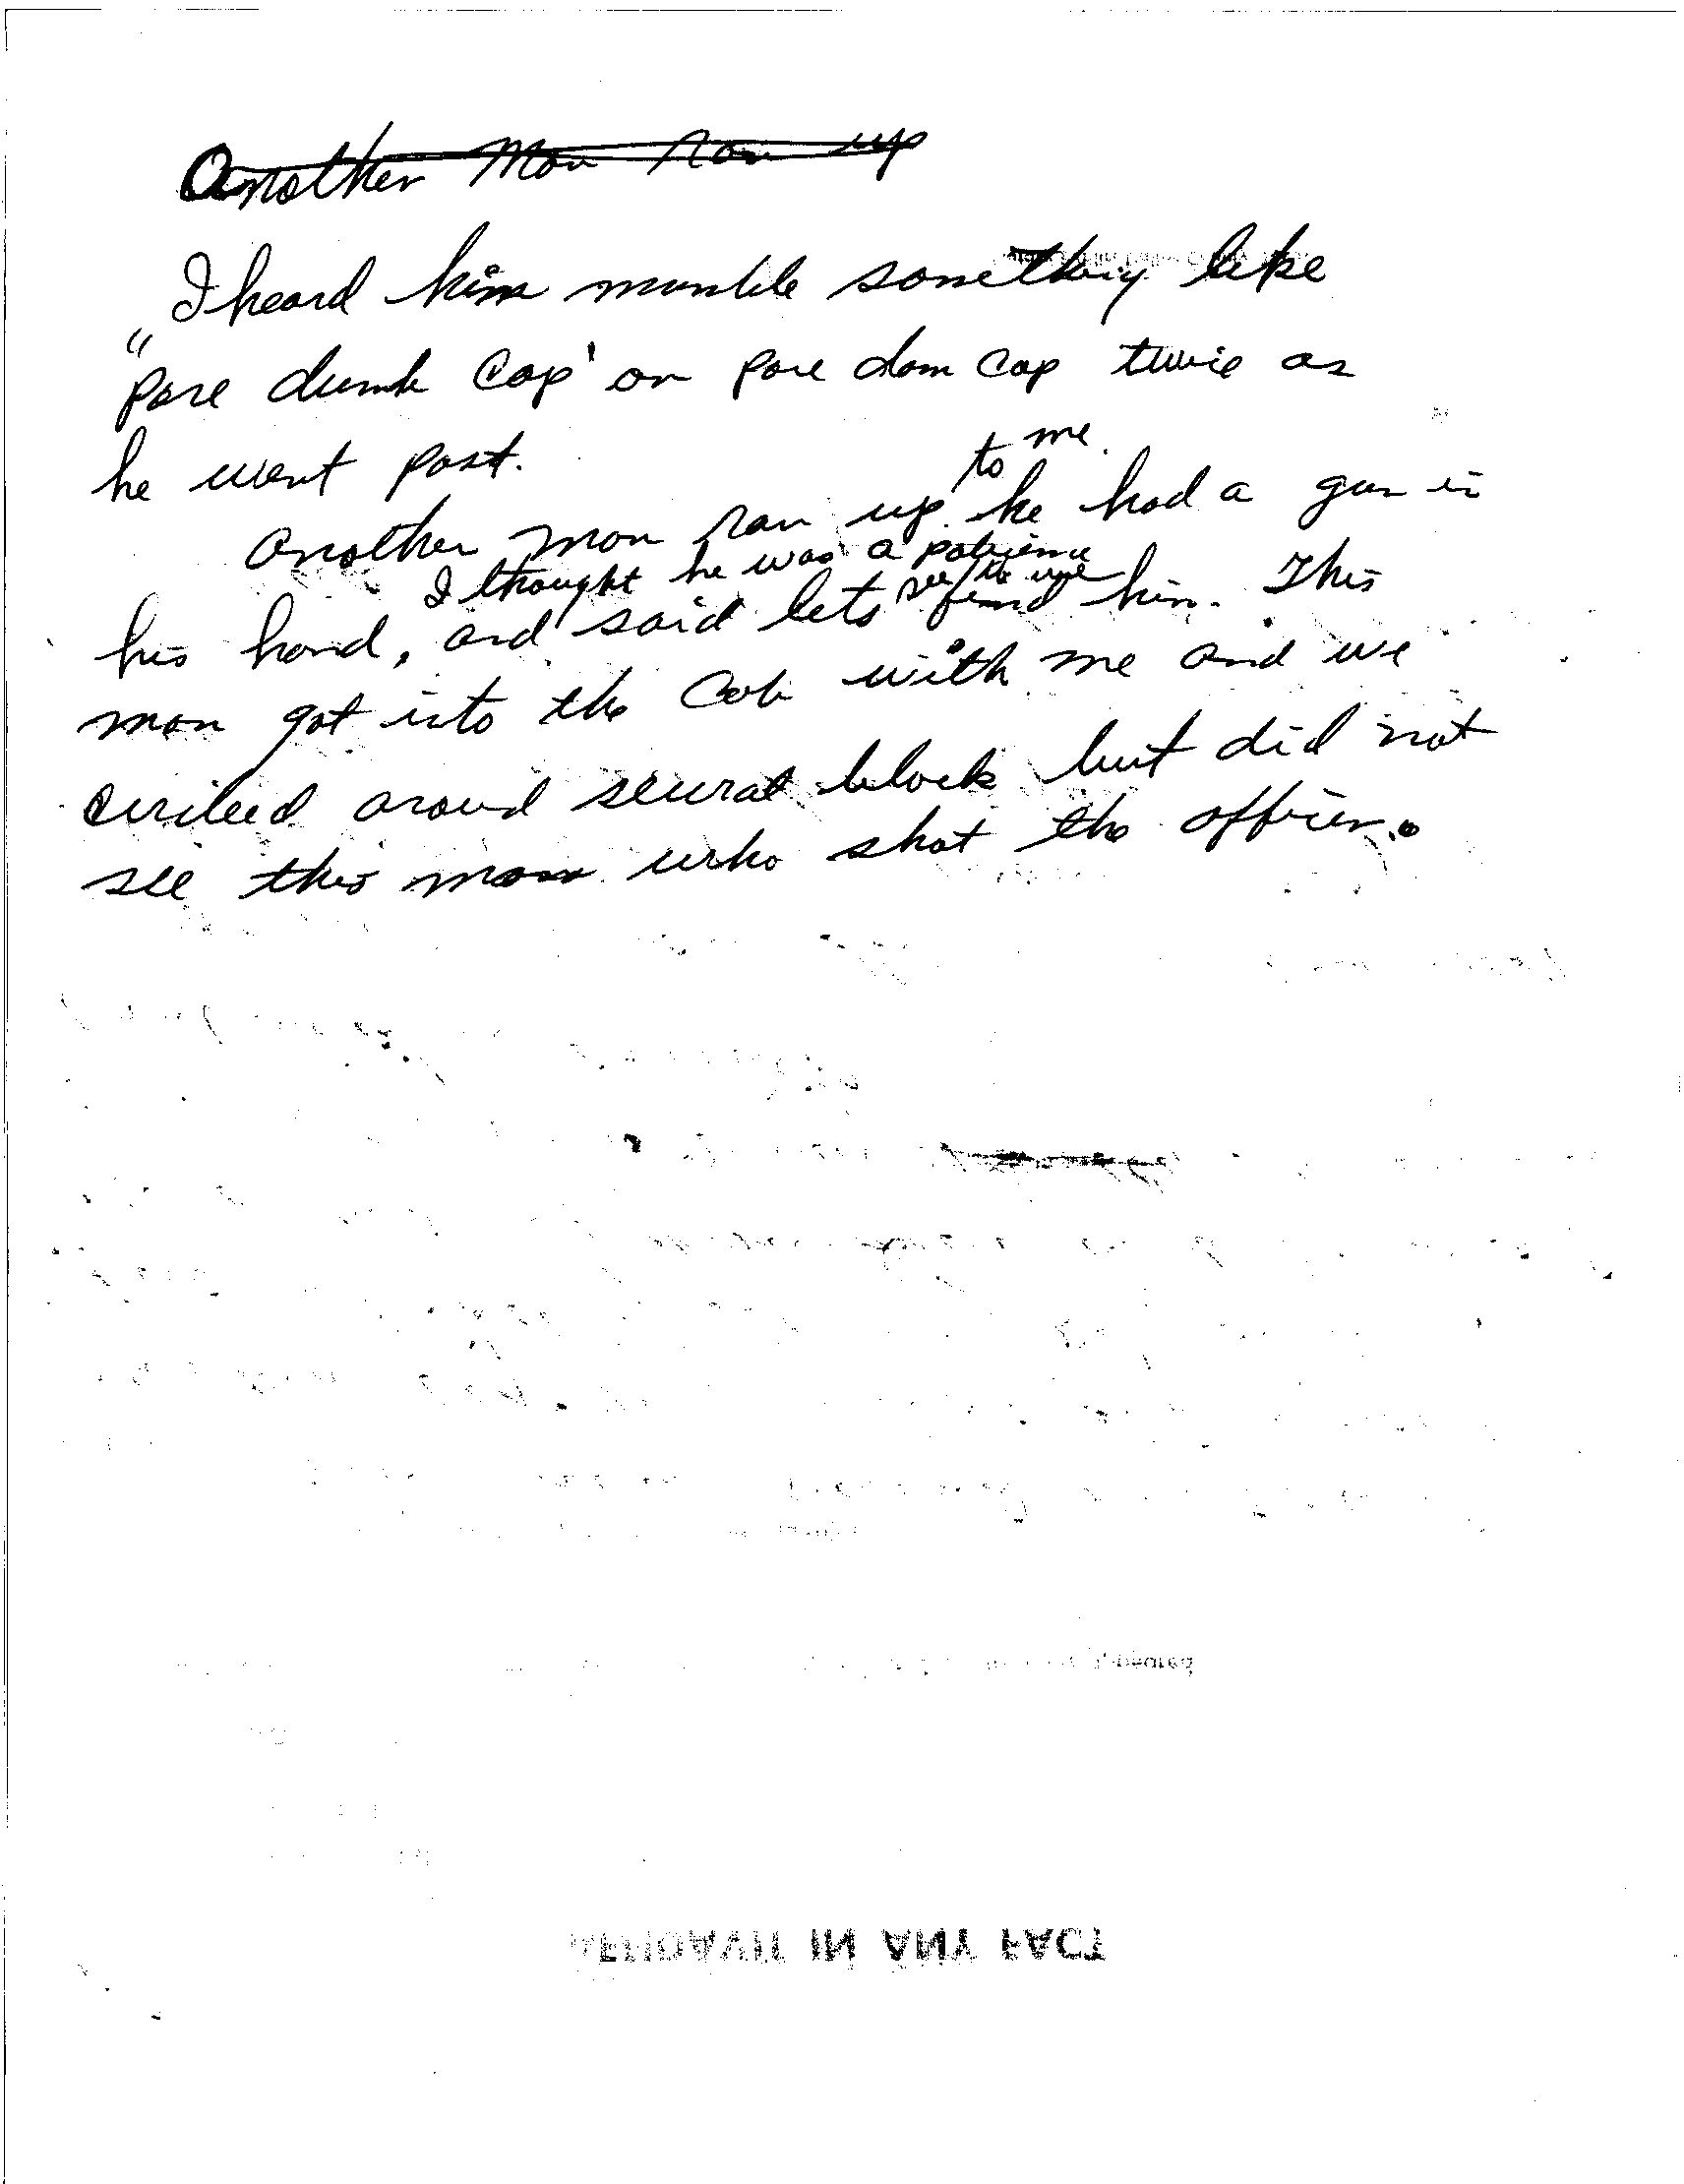 Another Man ran up
I heard him mumble something like
"pore dumb cop' or pore dam cop twice as
he went past.
to me.
Another man ran up. he had a gun in
I thought he was a policeman
see if we
his hand, and said lets find him. This
man got into the cab with me and we
circled around several block but did not
see this man who shot the officer.
AFFIDAVIT IN ANY FACT